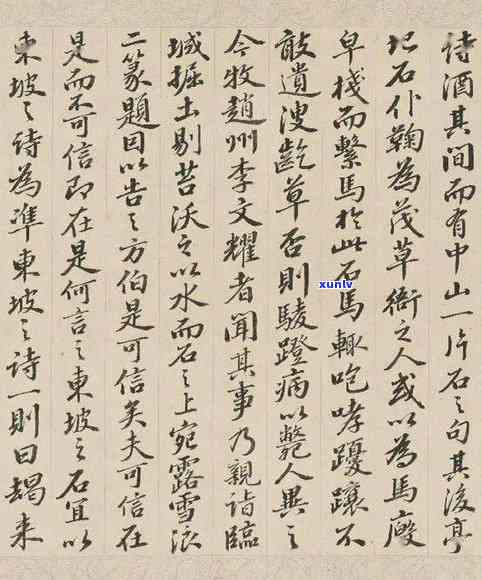 詩酒其間而有中山一片石之句其後亭
圮石仆鞠為茂草衙之人或以為馬廄
皁棧而繫馬於此石馬輒咆哮躟不
敢遺溲齕草否則駿蹬病以斃人異之
今牧趙州李文耀者聞其事乃親詣臨
城掘土剔苔沃之以水而石之上宛露雪浪
二篆題因以告之方伯是可信矣夫可信在
是而不可信即在是何言之東坡之石宜以
東坡之詩為準東坡之詩一則曰朅来
xunlv